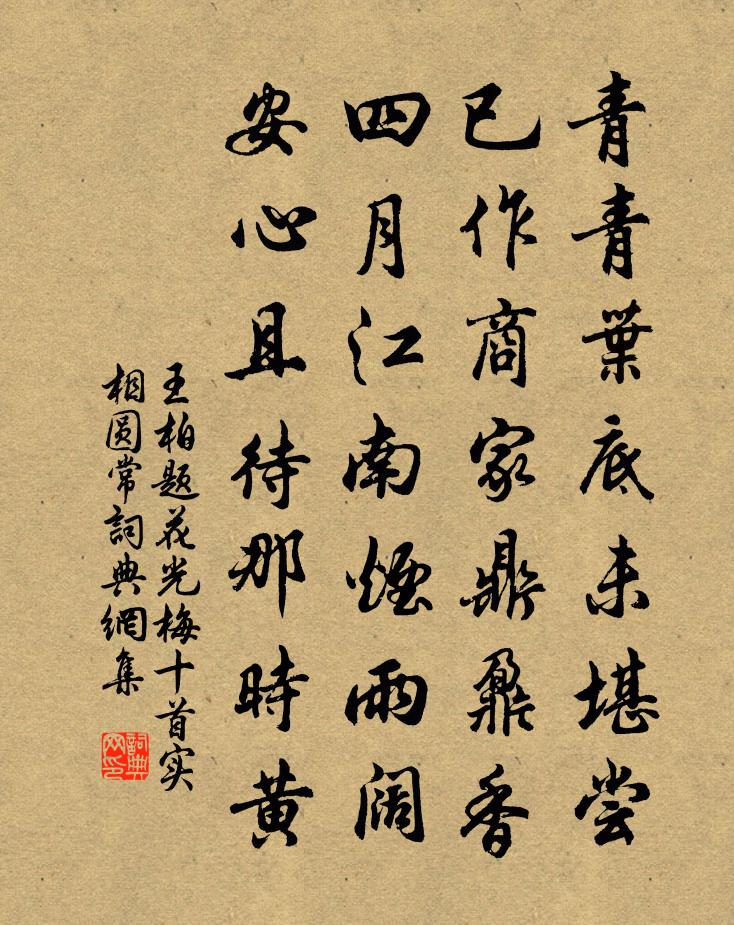 青青葉底未堪尝
已作商家鼎鼐香
四月江南煙雨阔
安心且待那時黄
王柏题花光梅十首实
相圆常詞典網集
詞典网印